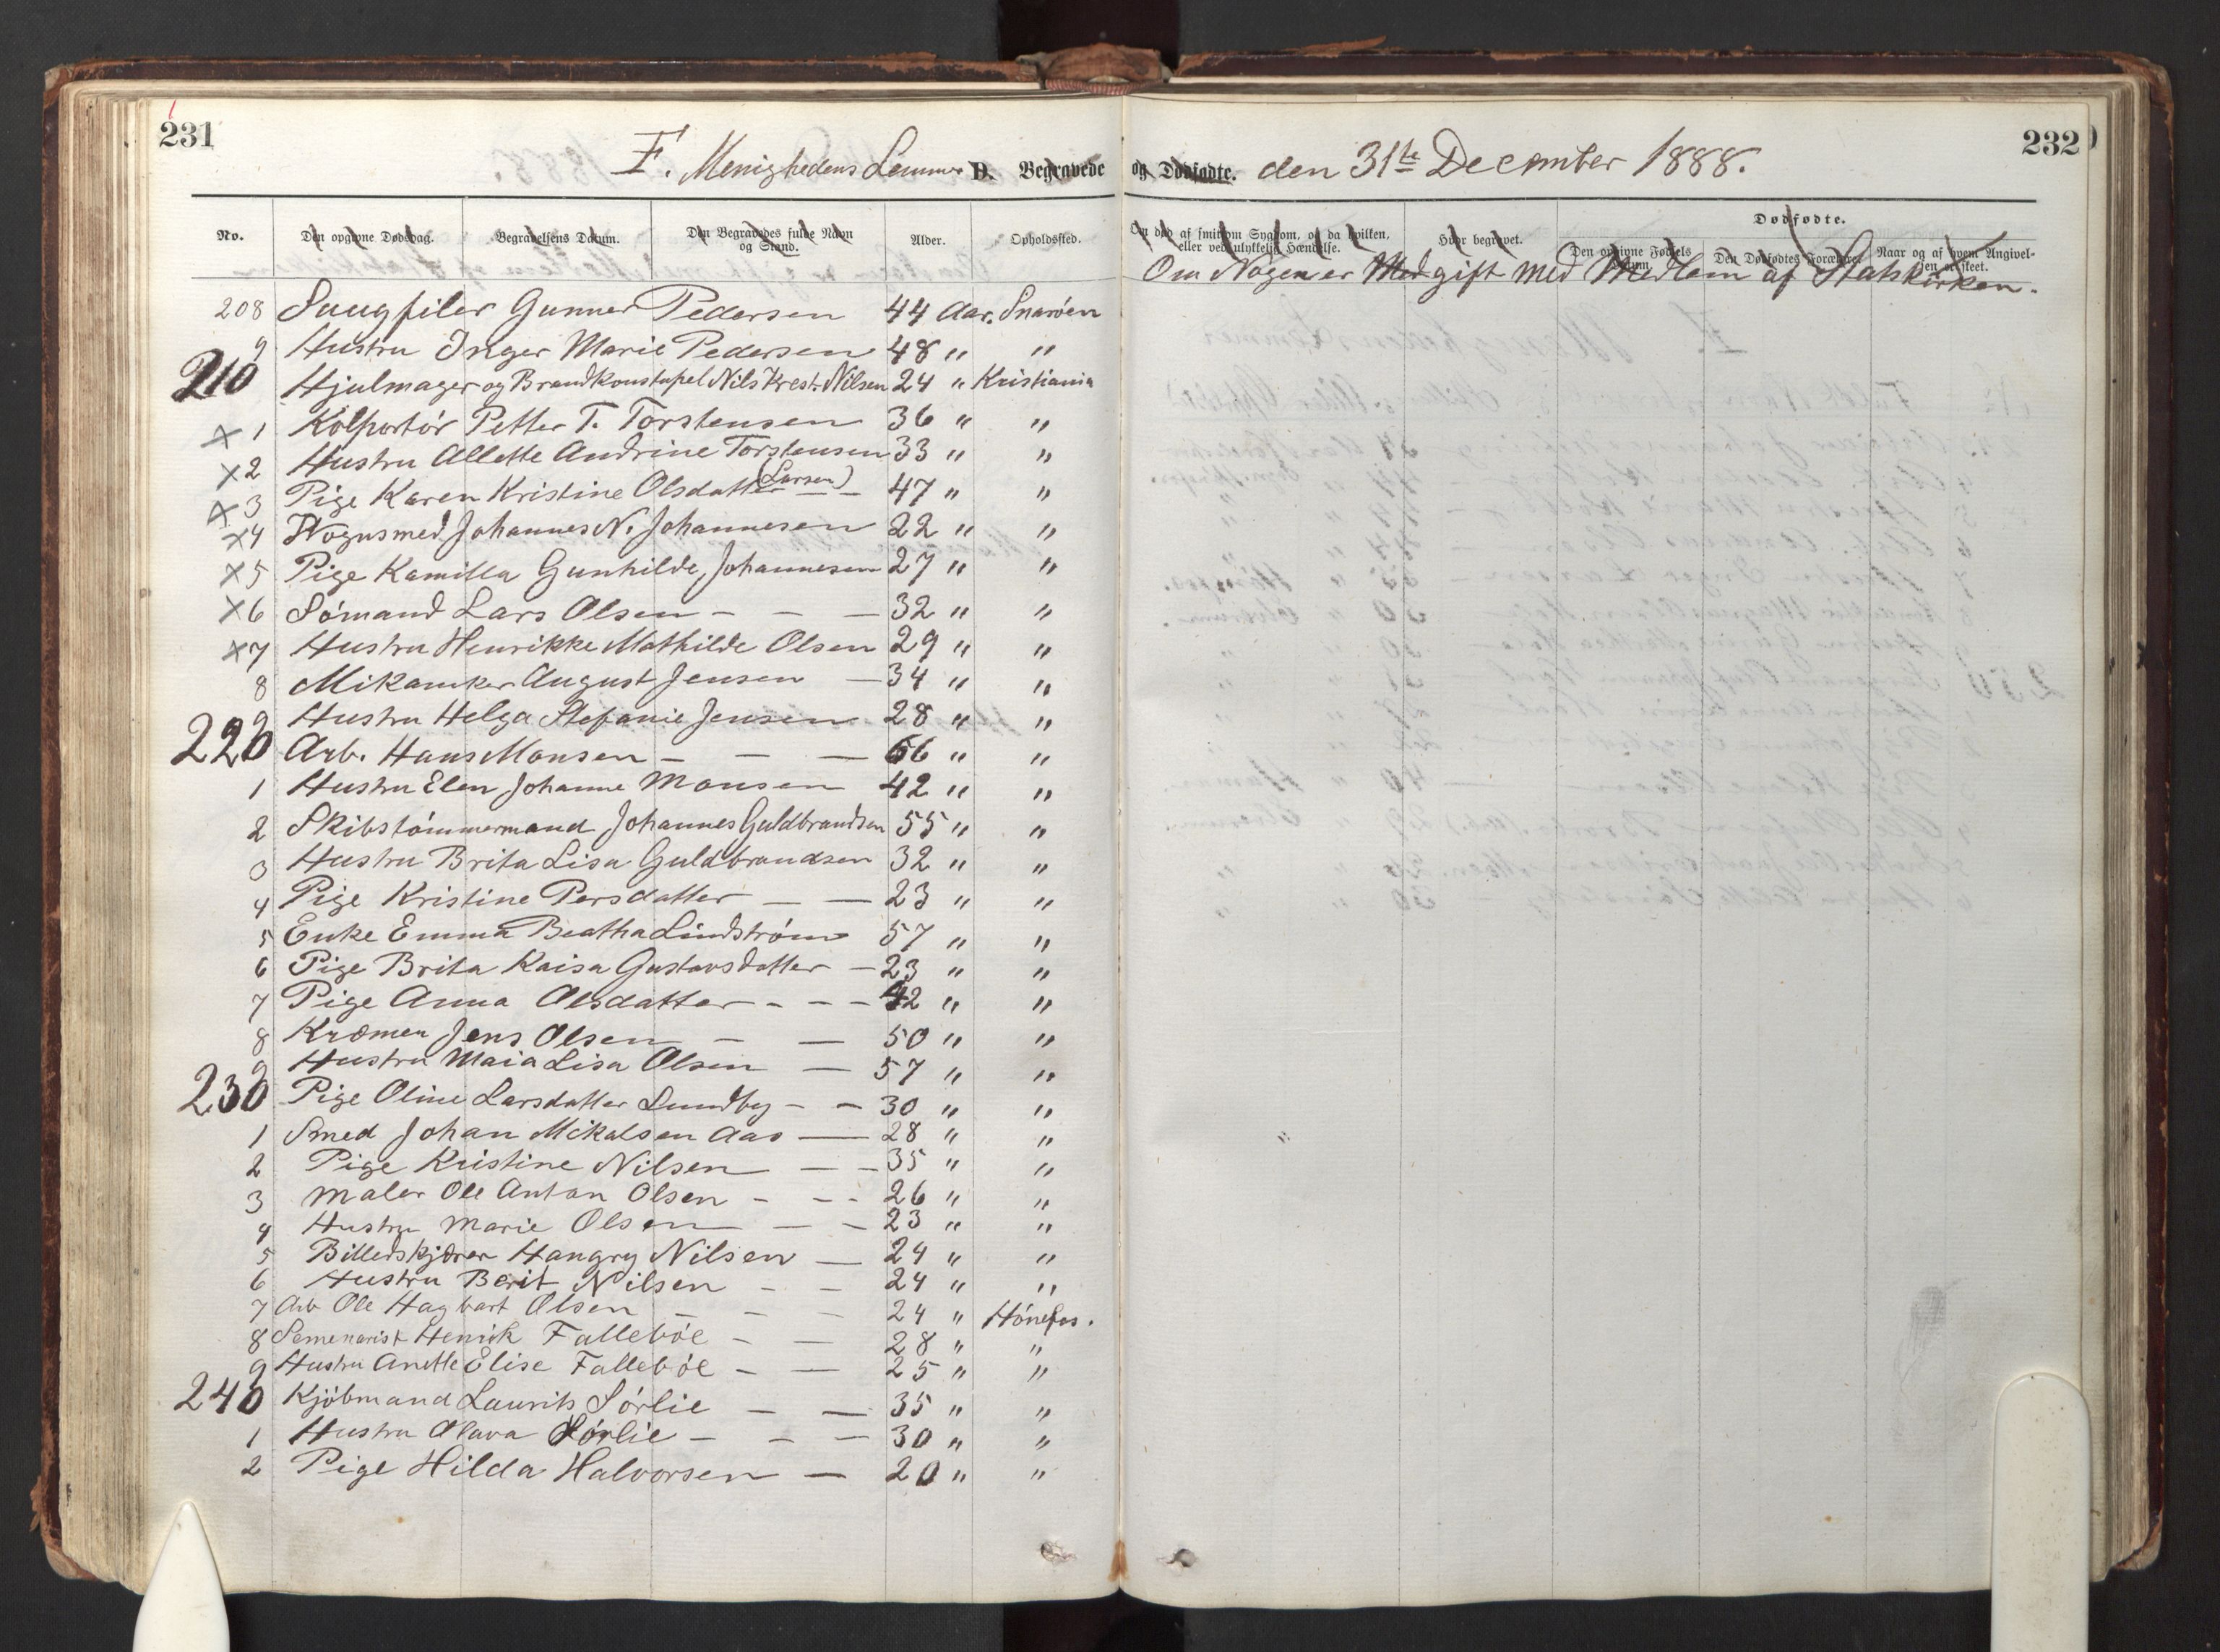 231
232
F. Menighedens Lemmer D. Begravede og Dødfødte. den 31te December 1888.
No.
Den opgivne Dødsdag.
Begravelsens Datum.
Den Begravedes fulde Navn og Stand.
Alder.
Opholdssted.
Om død af smitsom Sygdom, og da hvilken, eller ved ulykkelig Hændelse.
Hvor begravet.
Dødfødte.
Den opgivne Fødsels Datum.
Den Dødfødtes Forældre.
Naar og af hvem Angivelsen er skeet.
Om Nogen er Med gift med Medlem af Statskirken.
208 Saugfiler Gunner Pedersen 44 Aar. Snarøen
9 Hustru Inger Marie Pedersen 48 " "
210 Hjulmager og Brandkonstapel Nils Krest. Nilsen 24 " Kristiania
x 1 Kolportör Petter T. Torstensen 36 " "
x 2 Hustru Allette Andrine Torstensen 33 " "
x 3 Pige Karen Kristine Olsdatter (Larsen) 47 " "
x 4 Vognsmed Johannes N. Johannesen 22 " "
x 5 Pige Kamilla Gunhilde, Johannesen 27 " "
x 6 Sömand Lars Olsen – – – 32 " "
x 7 Hustru Henrikke Mathilde Olsen 29 " "
8 Mikaniker August Jensen – 34 " "
9 Hustru Helga Stefanie Jensen 28 " "
220 Arb. Hans Monsen – – – 56 " "
1 Hustru Elen Johanne Monsen 42 " "
2 Skibstömmermand Johannes Guldbrandsen 55 " "
3 Hustru Brita Lisa Guldbrandsen 32 " "
4 Pige Kristine Persdatter – – 23 " "
5 Enke Emma Beatha Lindström 57 " "
6 Pige Brita Kaisa Gustavsdatter – 23 " "
7 Pige Anna Olsdatter – – – 42 " "
8 Kræmer Jens Olsen – – 50 " "
9 Hustru Maia Lisa Olsen – 57 " "
230 Pige Oline Larsdatter Lundby – – 30 " "
1 Smed Johan Mikalsen Aas – 28 " "
2 Pige Kristine Nilsen – – 35 " "
3 Maler Ole Anton Olsen – – – 26 " "
4 Hustru Marie Olsen – – 23 " "
5 Billedskjærer Hangry Nilsen – 24 " "
6 Hustru Berit Nilsen – – 24 " "
7 Arb Ole Hagbart Olsen – – – 24 " Hönefos.
8 Semenarist Henrik Falleböe – – 28 " "
9 Hustru Anette Elise Falleböe – – 25 " "
240 Kjöbmand Laurits Sörlie – – 35 " "
1 Hustru Olava Sörlie – – – 30 " "
2 Pige Hilda Halvorsen – 20 " "